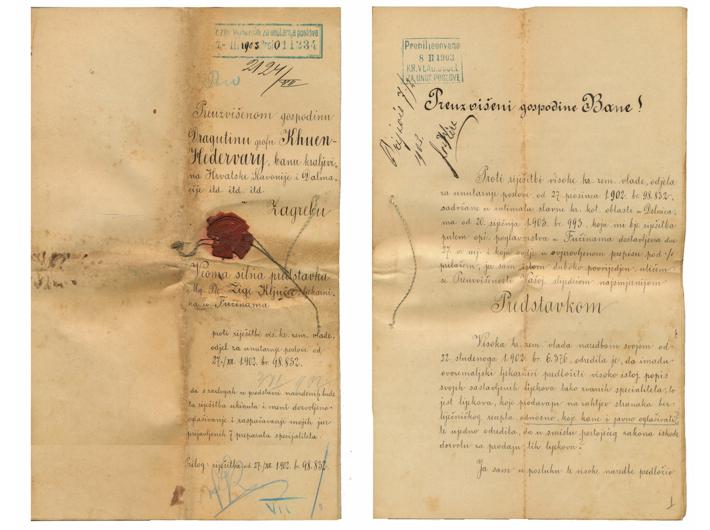 za unutarnje poslove
II. 1903 011234
2124/VII
Preuzvišenom gospodinu
Dragutinu grofu Khuen-
Hedervary, banu kraljevi-
na Hrvatske Slavonije i Dalma-
cije itd. itd. itd.
Zagreb
Veoma silna predstavka
Mg. Ph. Žige Ključec, ljekarni-
ka u Fužinama
proti riješitbi vis. kr. zem. vlade,
odjel za unutarnje poslove od
27./XII. 1902. br. 98.832.
da s razloga u predstavci navedenih bude
ta riješitba ukinuta i meni dozvoljeno
oglašivanje i raspačavanje mojih jur
prijavljenih 7 preparata specijaliteta.
Prilog: riješitba od 27./XII. 1902. br. 98.832.
VII
8 II 1903
KR. VLAD. ODJEL
ZA UNUT. POSLOVE
Preuzvišeni gospodine Bane!
Proti riješitbi visoke kr. zem. vlade, odjela
za unutarnje poslove od 27. prosinca 1902. br. 98.832.,
sadržane u intimatu slavne kr. kot. oblasti u Delnica-
ma od 20. siječnja 1903. br. 993., koja mi bje riješitba
putem opć. poglavarstva u Fužinama dostavljena dne
27. o. mj. i koju ovdje u ovjerovljenom prepisu pod %
prilažem, ja sam istom duboko povrijedjen utičem
se Preuzvišenosti Vašoj slijedećom najsmjernijom
Predstavkom
Visoka kr. zem. vlada naredbom svojom od
22. studenoga 1902. br. 6.376, odredila je, da imadu
ovozemaljski ljekarnici predložiti visoko istoj popis
svojih sastavljenih lijekova tako zvanih specijaliteta, to
jest lijekova, koje prodavaju na zahtjev stranaka bez
liječničkog recepta, odnosno, koje kane i javno oglašivati,
te ujedno odredila, da u smislu postojećeg zakona ishode
dozvolu za prodaju tih lijekova.
Ja sam u posluhu te visoke naredbe predložio